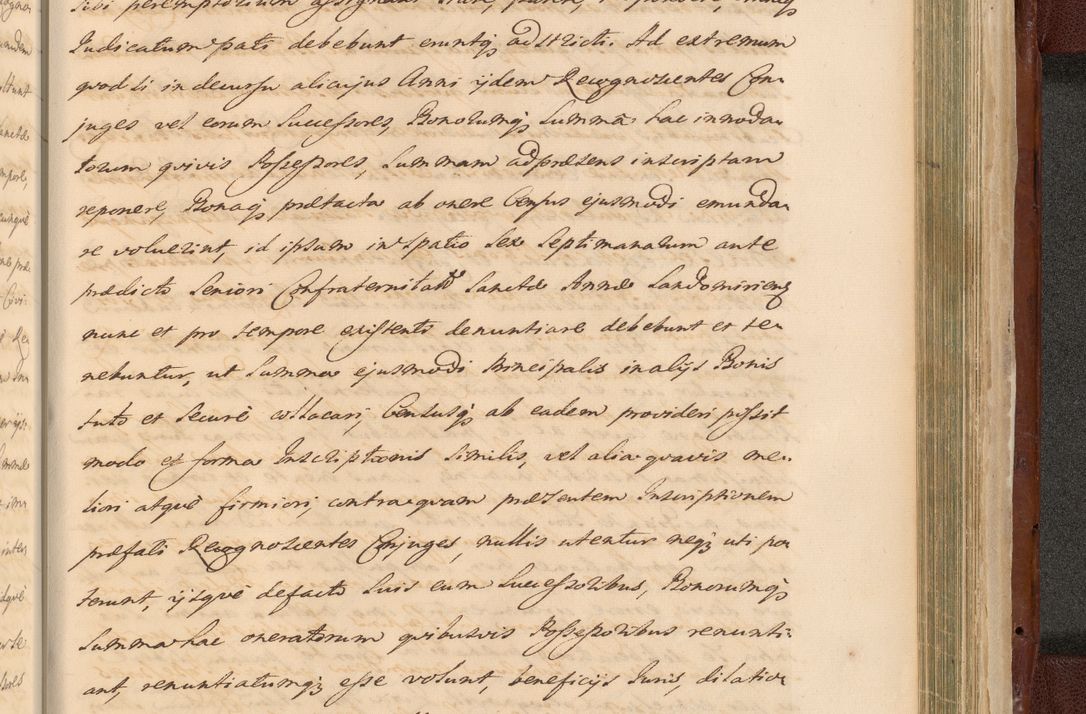 sibi peremptorium assignant
Judicatum pati debebunt eruntq3 adstricti. Ad extremum
quod si in decursu alicujus Anni ijdem Recognoscentes Con-
juges vel eorum Successores, Bonorumq3 Summâ hac innoda-
torum quivis Possessores, Summam adpræsens inscriptam
reponere, Bonaq3 præfacta ab onere Census ejusmodi emunda-
re voluerint, id ipsum in Spatio Sex Septimanarum ante
prædicto Seniori Confraternitatis Sanctæ Annæ Sandomiriens
nunc et pro tempore existenti denuntiare debebunt et te-
nebuntur, ut Summa ejusmodi Principalis in alijs Bonis
tuto et Securè collocari, Censusq3 ab eadem provideri possit
modo et forma Inscriptionis Similis, vel alia quavis me-
liori atquè firmiori, contra quam præsentem Inscriptionem
præfati Recognoscentes Conjuges, nullis utentur neq3 uti po-
terunt, ijsquè defacto Suis cum Successoribus, Bonorumq3
Summa hac oneratorum quibusvis Possessoribus renunti-
ant, renuntiatumq3 esse volunt, beneficijs Juris, dilatio-